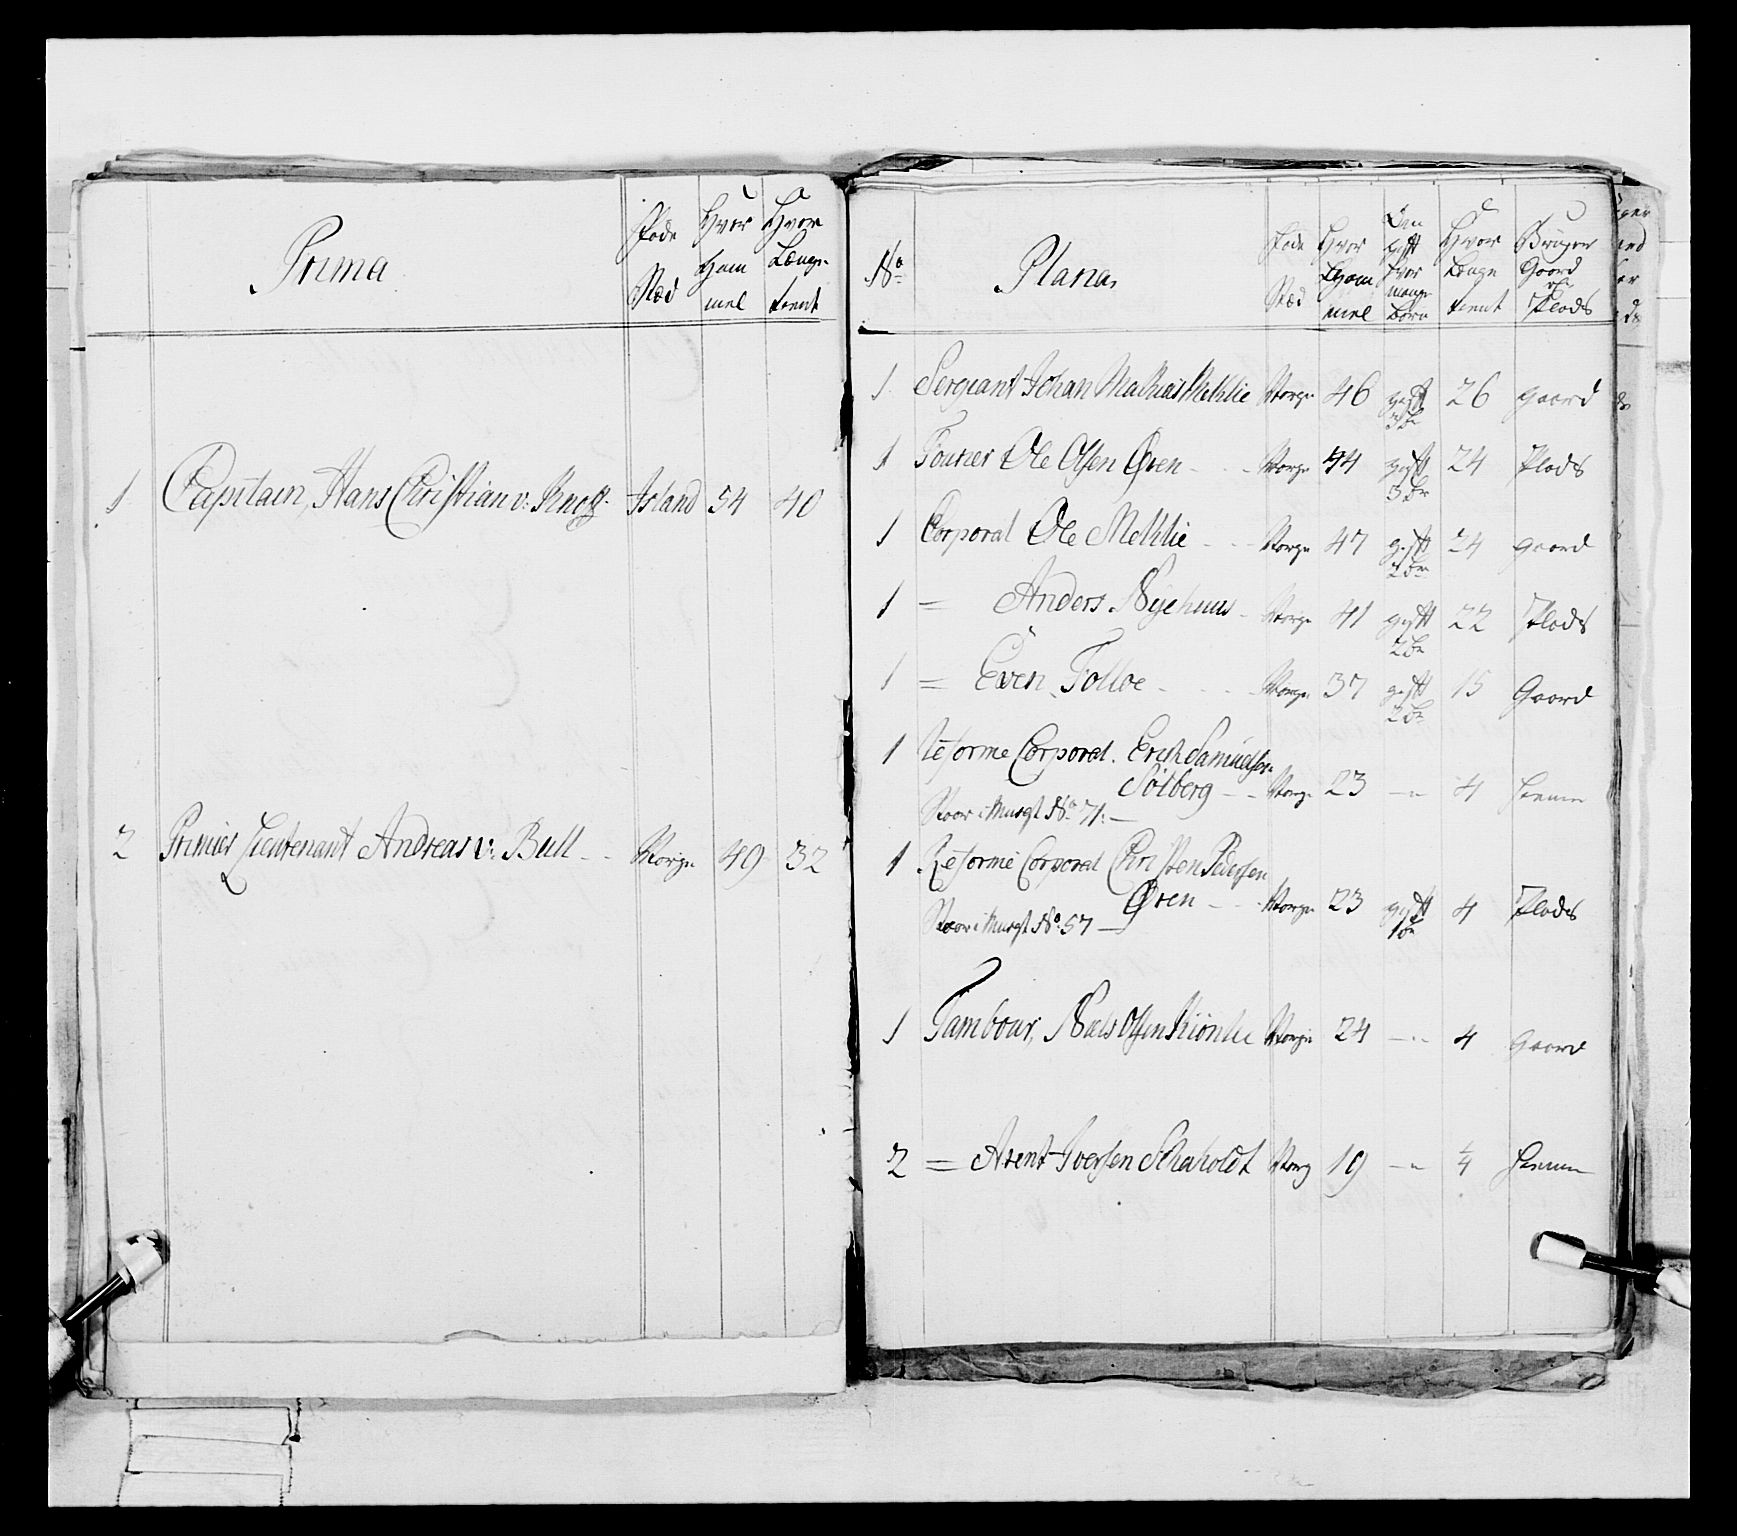 Prima
Føde Stæd
Hvor Gammel
Hvor Længe tient
1 Capitain, Hans Christian v: Knoff. Island 54 40
2 Primier Lieutenant Andreas v: Bull Norge 49 32
No
Plana,
Føde Stæd
Hvor Gammel
Om gift hvor mange Børn
Hvor Længe tient
Bruger Gaard eller Plads
1 Sergeant Johan Mathias Mehlie Norge 46 gift 26 gaard
1 Fourier Ole Olsen Øren Norge 44 gift 3 Bn 24 Plads
1 Corporal Ole Mehlie Norge 47 gift 2 Bn 24 gaard
1 = Anders Nyehuus Norge 41 gift 2 Bn 22 Plads
1 = Even Folloe Norge 37 gift 2 Bn 15 Gaard
1 Reforme Corporal Erich Samuelsen
Solberg Norge 23 4 hiemme
Staar i No 71.
1 Reforme Corporal Christen Pedersen
Øren Norge 23 gift 1 Bn 4 Plads
Staar i No 57
1 Tambour, Niels Olsen Norge 24 4 Gaard
2 = Arent Iversen Schaholdt Norg 19 1/4 hiemme